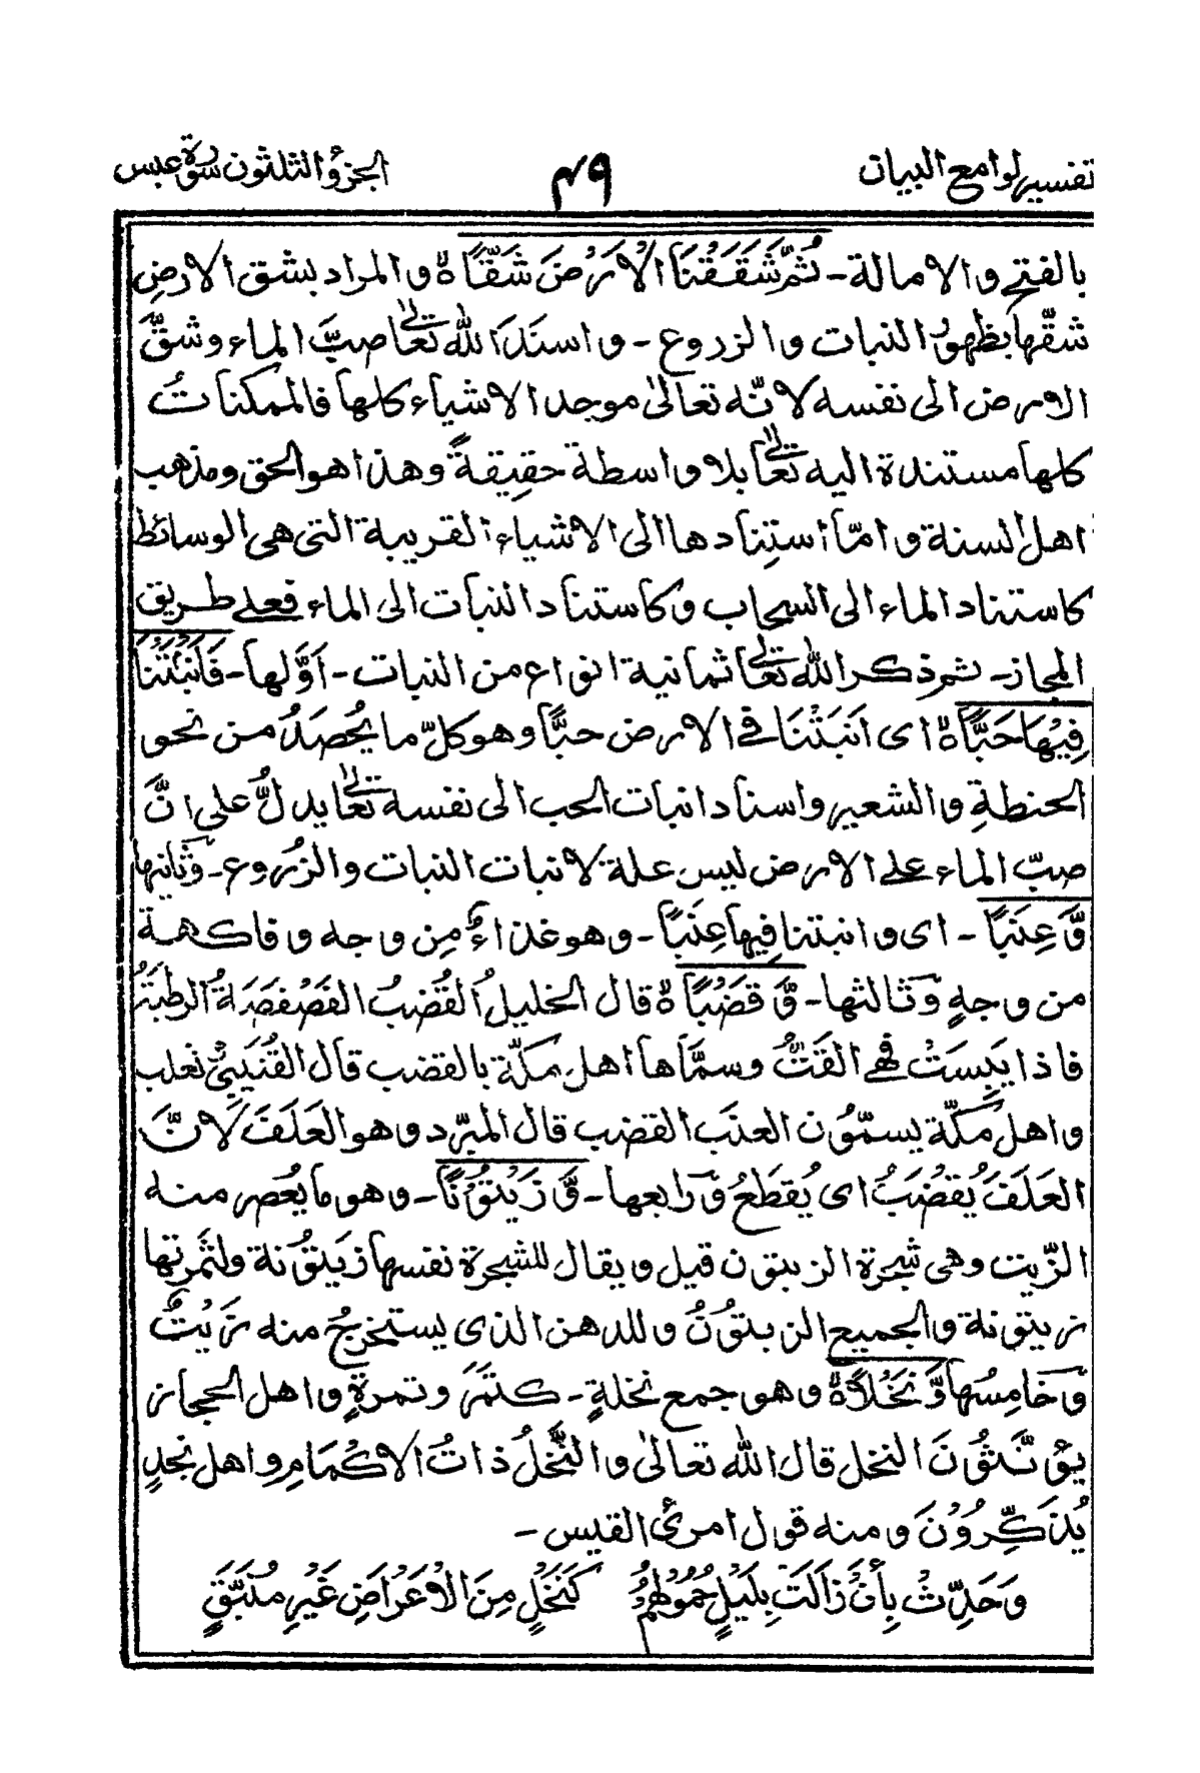 تفسير لوامع البيان ٤٩ الجزؤ الثلثون سورة عبس
بالفتح والامالة - ثُمَّ شَقَقْنَا الْاَرْضَ شَقًّا ۃ والمراد بشق الارضِ
شقّها بظهور النبات والزروع - واسنَدَ اللّٰه تعالىٰ صبَّ الماء وشقَّ
الارض الى نفسه لانّه تعالىٰ موجد الاشياء كلها فالممكناتُ
كلها مستندة اليه تعالىٰ بلا واسطة حقِيقةً وهذا هو الحق ومذهب
اهل السنة وامّا استِنادها الى الاشياء القريبة التى هى الوسائط
كاستناد الماء الى السحاب وكاستناد النبات الى الماء فعلى طريق
المجاز - ثم ذكر اللّٰه تعالىٰ ثمانية انواع من النبات - اَوَّلها - فَاَنْبَتْنَا
فِيْهَا حَبًّا ۃ اى اَنبَتْنَا فى الارض حبًّا وهو كلّ ما يُحْصَدُ من نحو
الحنطةِ والشعير واسناد انبات الحب الى نفسه تعالىٰ يدلُّ على انَّ
صبّ الماء على الارض ليس علة لانبات النبات والزُروع - وثانيها
وَّ عِنَبًا - اى وانبتنا فِيها عِنَبًا - وهو غذاءٌ مِن وجه وفاكهة
من وجهٍ وثالثها - وَّ قَضْبًا ۃ قال الخليل اَلقُضبُ الفَصْفَصَةُ الرطبَةُ
فاذا يَبِسَتْ فهى القَتُّ وسمَّاها اهل مكّة بالقضب قال القُتَيبىْ ثعلب
واهل مكّة يسمّوُن العنَب القضب قال المبرّد وهو العَلَفَ لَانَّ
العَلَفَ يُقضَبُ اى يُقطَعُ ورابعها - وَّ زَيْتُوْنًا - وهو ما يُعصر منه
الزّيت وهى شجرة الزيتون قيل ويقال للشجرة نفسها زيَتوُنة ولثَمرتها
زيتونة والجميع الزيتوُنُ وللدهن الذى يستخرجُ منه زَيْتٌ
وخامِسُها وَّ نَخْلًا ۃ وهو جمع نخلةٍ - كتَمَرَ وتمرةٍ واهل الحجاز
يؤنَّثُونَ النخل قال اللّٰه تعالىٰ والنَّخلُ ذاتُ الاكْمَامِ واهل نجدٍ
يُذَكِّرُوْنَ ومنه قول امرئ القيس -
وَحَدِّثْ بِأَنْ زَالَتْ بِلَيْلٍ حُمُوْلُهُمْ كَنَخْلٍ مِنَ الْاَعْرَاضِ غَيْرِ مُنَبَّقٍ